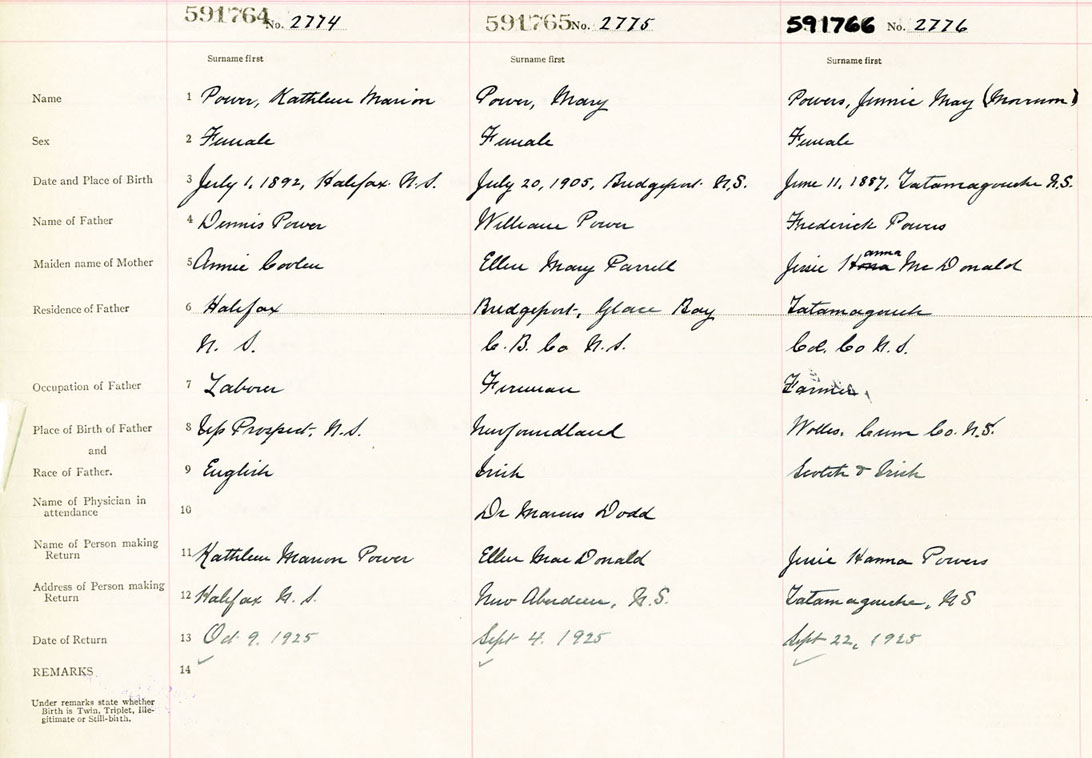 591764 No. 2774 591765 No. 2775 591766 No. 2776
Surname first Surname first Surname first
Name 1 Power, Kathleen Marion Power, Mary Powers, Jennie May (Morrison)
Sex 2 Female Female Female
Date and Place of Birth 3 July 1, 1892, Halifax N.S. July 20, 1905, Bridgeport N.S. June 11, 1887, Tatamagouche N.S.
Name of Father 4 Dennis Power William Power Frederick Powers
Maiden name of Mother 5 Annie Coolen Ellen Mary Parrell Jessie Hanna Mc Donald
Residence of Father 6 Halifax Bridgeport, Glace Bay Tatamagouch
N. S. C. B. Co N. S. Col. Co N. S.
Occupation of Father 7 Laborer Fireman Farmer
Place of Birth of Father 8 Up Prospect, N.S. Newfoundland Cum Co. N.S.
and
Race of Father. 9 English Irish Scotch & Irish
Name of Physician in
attendance 10 Dr Marcus Dodd
Name of Person making
Return 11 Kathleen Marion Power Ellen MacDonald Jessie Hanna Powers
Address of Person making
Return 12 Halifax N. S. New Aberdeen, N.S. Tatamagouche, N S
Date of Return 13 Oct 9. 1925 Sept 4. 1925 Sept 22, 1925
REMARKS 14
Under remarks state whether
Birth is Twin, Triplet, Ille-
gitimate or Still-birth.